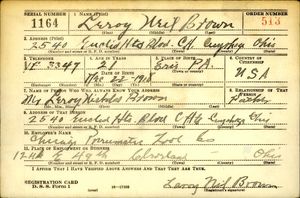 SERIAL NUMBER 1. NAME (Print) ORDER NUMBER
1164 Leroy Neil Brown 513
2. ADDRESS (Print)
2540 Euclid Hts Blvd. C.H. Cuyahoga Ohio
3. TELEPHONE 4. AGE IN YEARS 5. PLACE OF BIRTH 6. COUNTRY OF CITIZENSHIP
YE 3347 21 Erie PA.
DATE OF BIRTH
22 1918 U.S.A
7. NAME OF PERSON WHO WILL ALWAYS KNOW YOUR ADDRESS 8. RELATIONSHIP OF THAT PERSON
Mr Leroy Nicholas Brown Father
9. ADDRESS OF THAT PERSON
2540 Euclid Hts Blvd C.H. Cuyahoga Ohio
10. EMPLOYER'S NAME
Chicago Pneumatic Tool Co
11. PLACE OF EMPLOYMENT OR BUSINESS
49th Cleveland Ohio
I AFFIRM THAT I HAVE VERIFIED ABOVE ANSWERS AND THAT THEY ARE TRUE.
REGISTRATION CARD
D. S. S. Form 1 Leroy Neil Brown